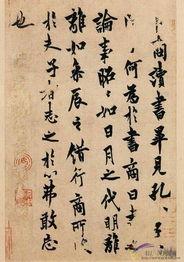 商讀書畢見孔子
何爲於書商曰書之
論事昭昭如日月之代明離
離如參辰之錯行商所
於夫子者志之於心弗敢忘
也